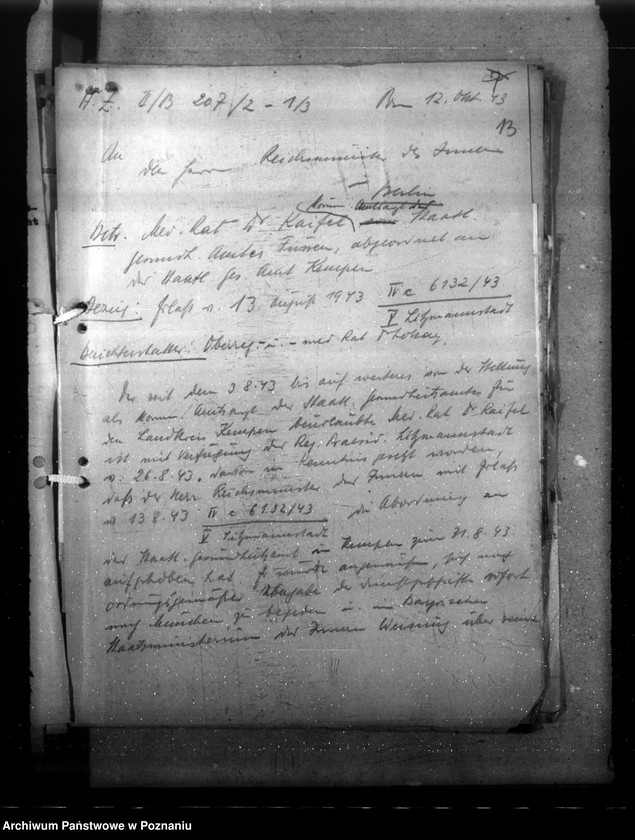 A.Z. II/B 207/2 - 1/3 12. Okt. 43
13
An
den Herrn Reichsminister des Innern
Berlin
Betr. Med. Rat Dr Kaifel, komm. Amtsarzt des Staatl.
Gesundh. Amtes Füssen, abgeordnet an
das Staatl. Ges. Amt Kempen
Bezug: Erlaß v. 13. August 1943 IV c 6132/43
V Litzmannstadt
Berichterstatter: Oberreg.- u. - med. Rat Dr
Der mit dem 3.8.43 bis auf weiteres von der Stellung
als komm. Amtsarzt des Staatl. Gesundheitsamtes für
den Landkreis Kempen beurlaubte Med. Rat Dr Kaifel
ist mit Verfügung des Reg. Praesid. Litzmannstadt
v. 26.8.43. davon in Kenntnis gesetzt worden,
daß der Herr Reichsminister des Innern mit Erlaß
v. 13.8.43 IV c 6132/43 die Abordnung an
V Litzmannstadt
das Staatl. Gesundheitsamt in Kempen zum 31.8.43
aufgehoben hat. Er wurde angewiesen, sich nach
ordnungsgemäßer Abgabe der Dienstgeschäfte sofort
nach München zu begeben u. im Bayrischen
Staatsministerium des Innern Weisung über seine
Archiwum Państwowe w Poznaniu